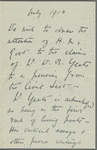 July 1910
We wish to draw the
attention of H. M.
Govt to the claims
of W. B. Yeats
to a pension from
the Civil List.
W. Yeats is
in the
rank of living poets
His critical essays &
other prose writings